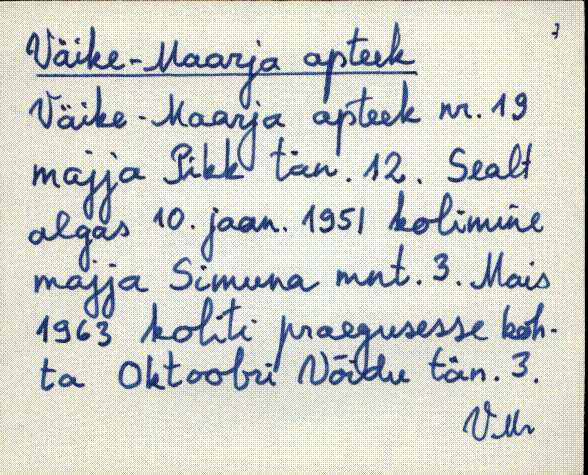 7
Väike-Maarja apteek
Väike-Maarja apteek nr. 19
majja Pikk tän. 12. Sealt
algas 10. jaan. 1951 kolimine
majja Simuna mnt. 3. Mais
1963 koliti praegusesse koh-
ta Oktoobri Võidu tän. 3.